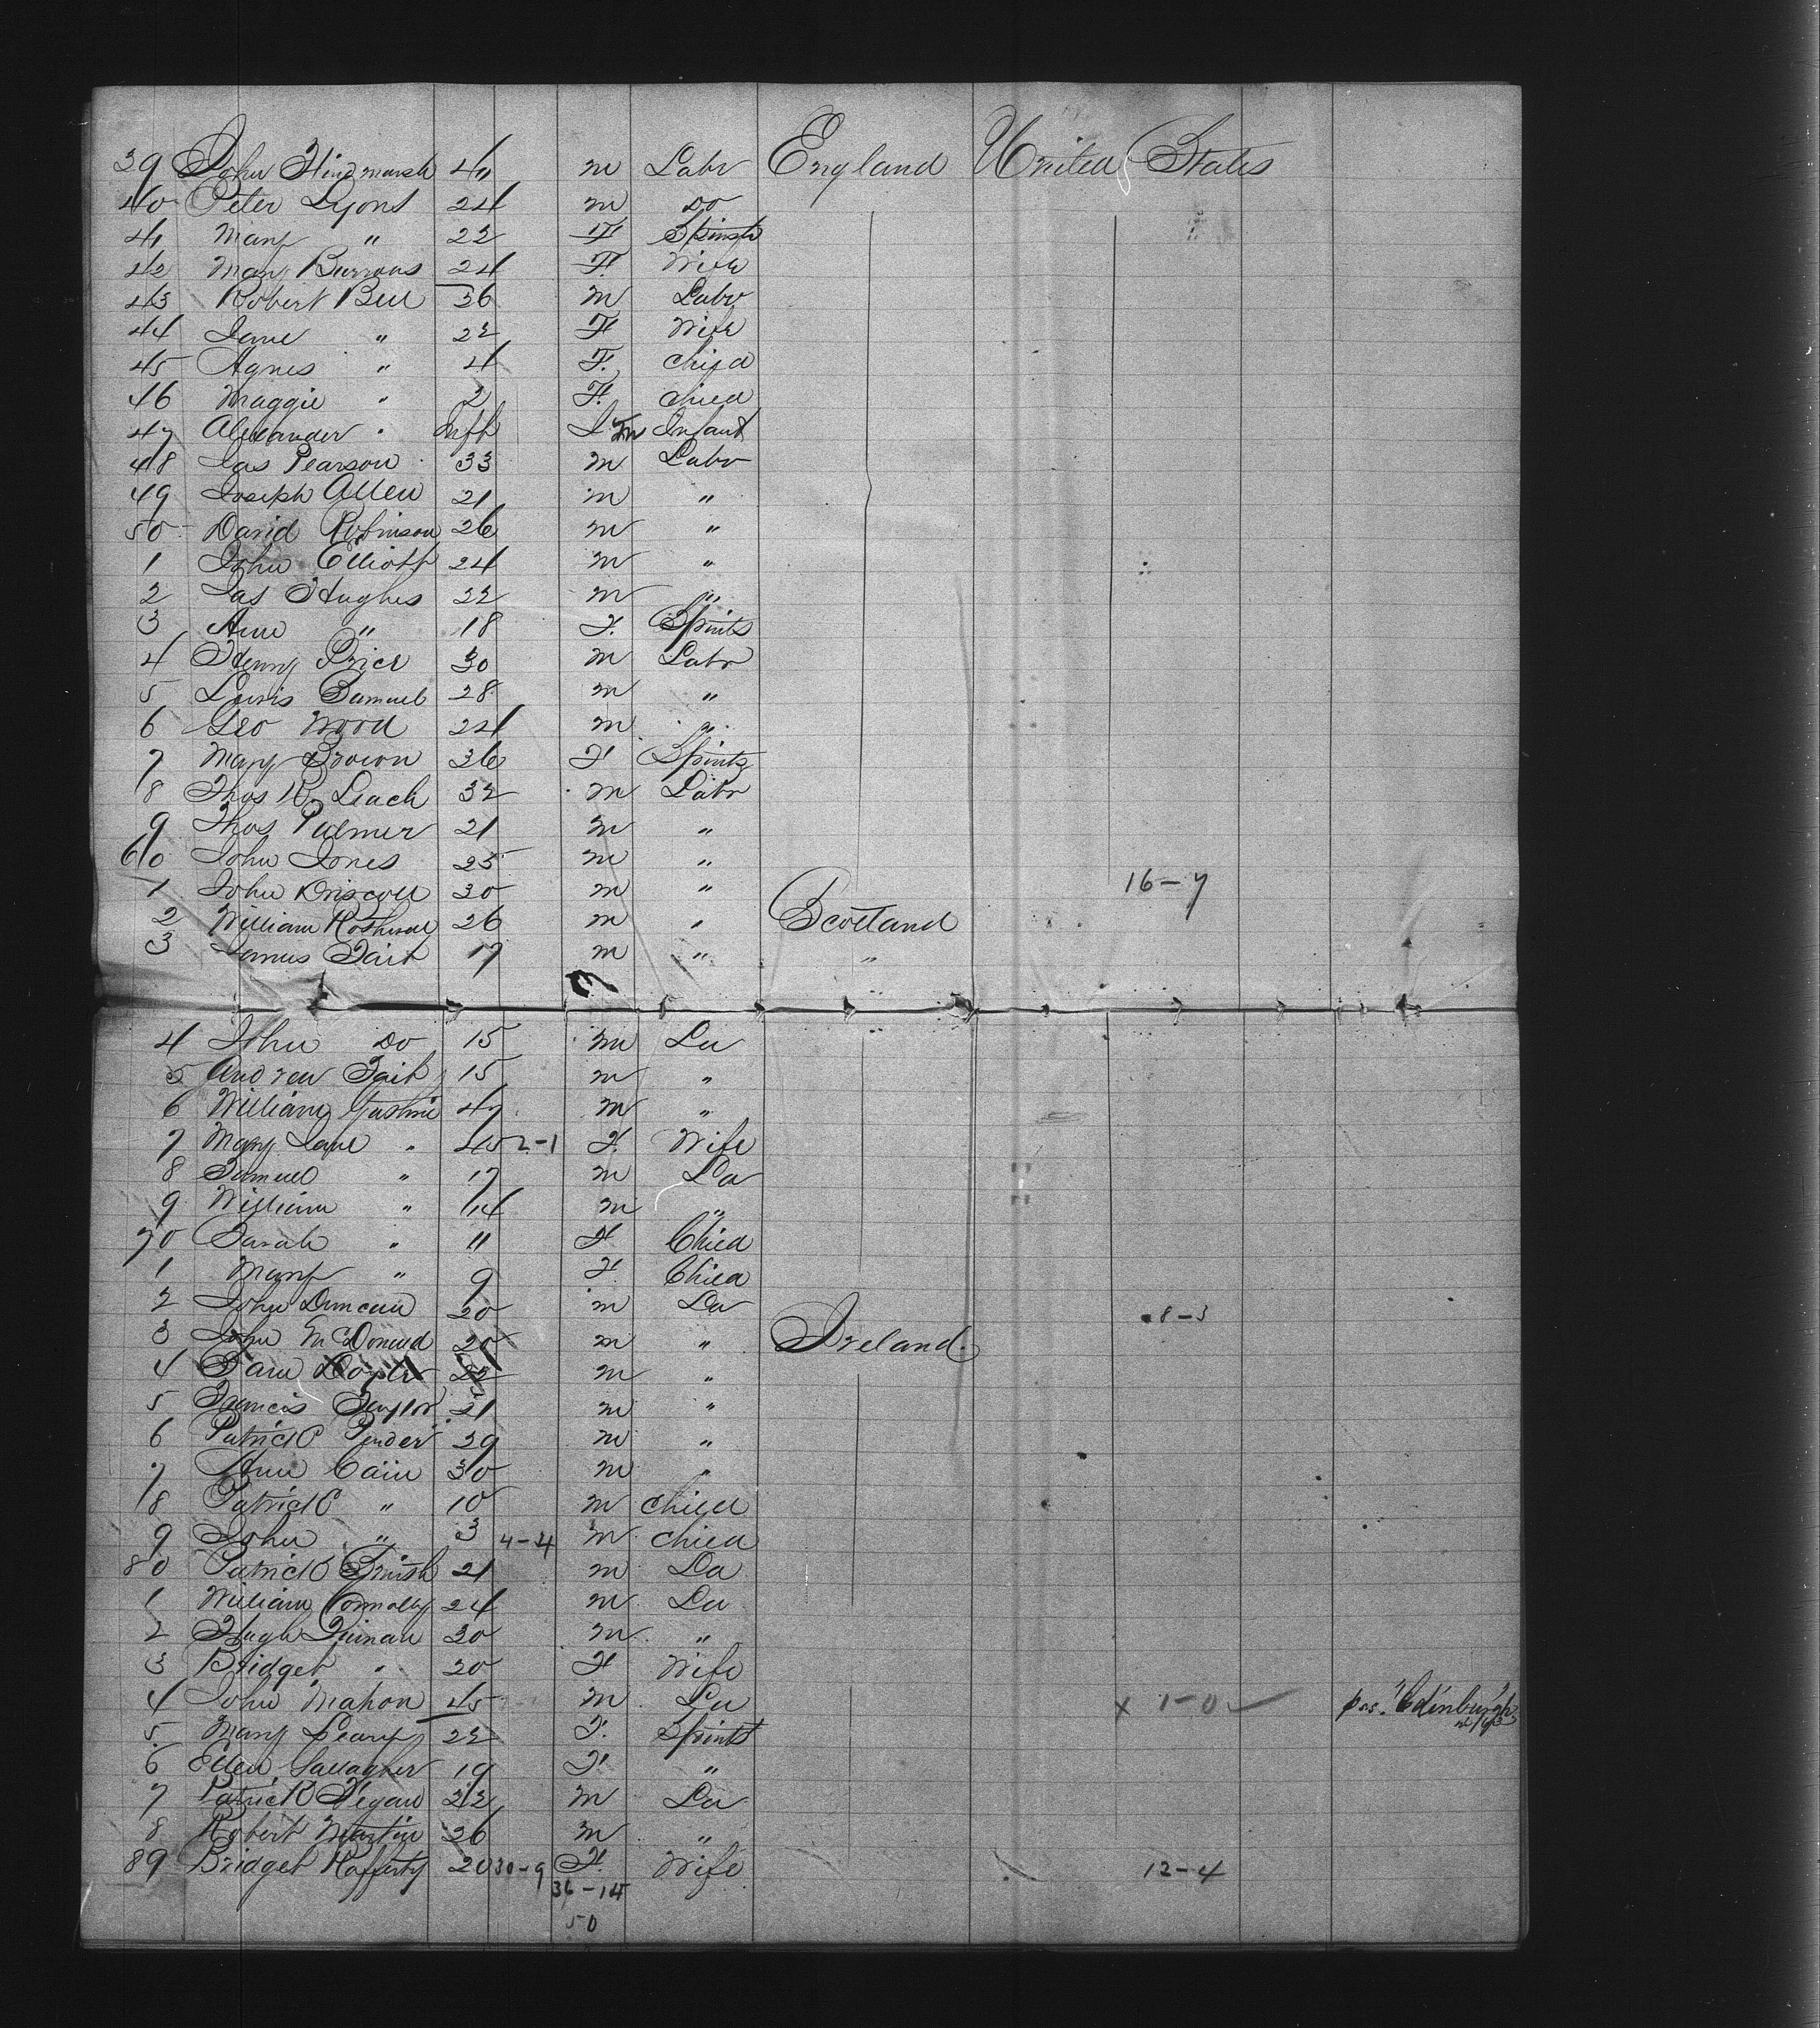 39 John Hindmarsh 40 m Labr England United States
40 Peter Lyons 24 m Do
41 Mary " 22 F Spinstr
42 Mary Burrows 24 F Wife
43 Robert Bell 36 m Labr
44 Jane " 22 F Wife
45 Agnes " 4 F. Child
46 Maggie " 2 F. Child
47 Alexander " Inft Infant
48 Jas Pearson 33 m Labr
49 Joseph Allen 21 m "
50 David Robinson 26 m "
1 John Elliott 24 m "
2 Jas Hughes 22 m "
3 Ann " 18 F. Spints
4 Henry Price 30 m Labr
5 Lewis Samuel 28 m "
6 Geo Wood 24 m "
7 Mary Brown 36 F Spints
8 Thos R. Leach 32 m Labr
9 Thos Palmer 21 m "
60 John Jones 25 m "
1 John Driscoll 30 m " 16-7
2 William 26 m " Scotland
3 James Tait 17 m " "
4 John Do 15 m La "
5 Andrew Tait 15 m "
6 William 47 m "
7 Mary Jane " 45 2-1 F. Wife
8 Samuel " 17 m La
9 William " 14 m "
70 Sarah " 11 F Child
1 Mary " 9 F. Child
2 John Duncan 20 m La 8-3
3 John McDonald 20 m " Ireland.
4 22 m "
5 Francis Taylor 21 m "
6 Patrick Pender 29 m "
7 Ann Cain 30 m "
8 Patrick " 10 m Child
9 John " 3 4-4 m Child
80 Patrick 21 m La
1 William Connolly 24 m La
2 Hugh 30 m "
3 Bridget " 20 F Wife
4 John Mahon 45 m La x 1-0 pas. "Edinburgh"
5 Mary Leary 22 F. Spints
6 Ellen Gallagher 19 F. "
7 Patrick Fegan 22 m La
8 Robert Martin 26 m "
89 Bridget Rafferty 20 30-9 F. Wife 12-4
36-14
50